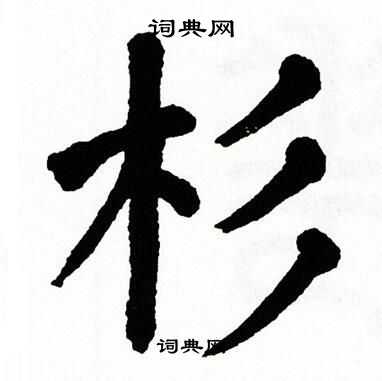 词典网
杉
词典网